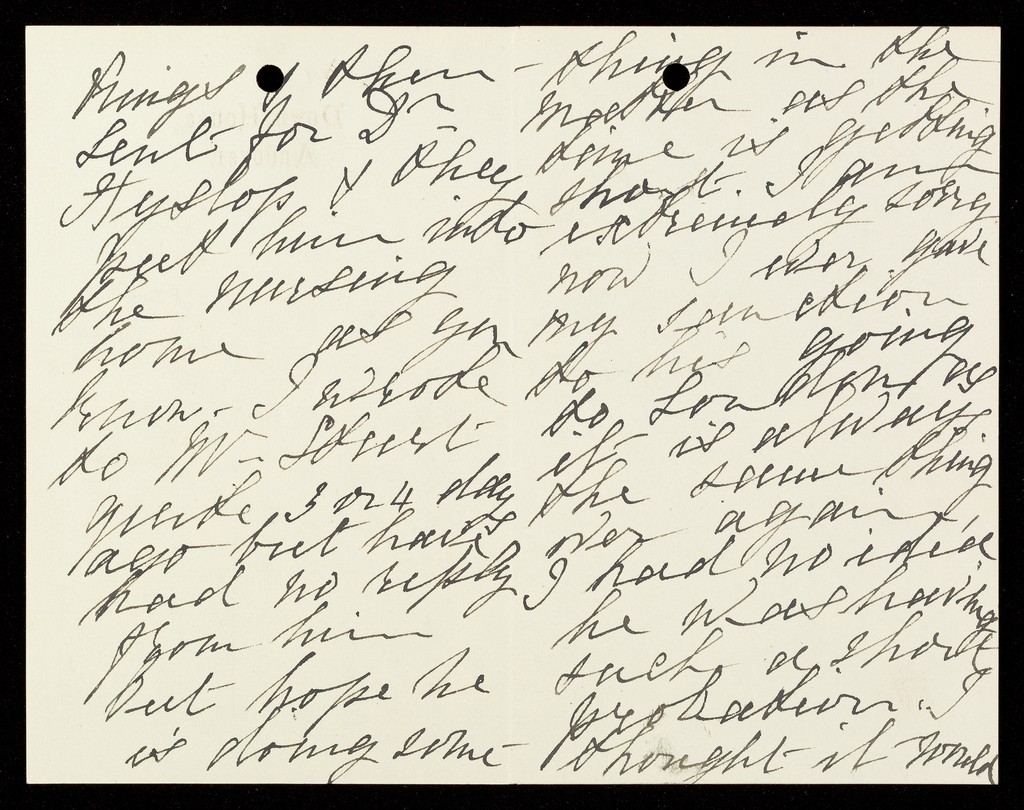 things & then
sent for Dr
Hyslop & they
put him into
the nursing
home as you
know. I wrote
to Mr Stuart
quite 3 or 4 days
ago but have
had no reply
from him
but hope he
is doing some-
thing in the
matter as the
time is getting
short. I am
extremely sorry
now I ever gave
my sanction
to his going
to London, as
it is always
the same thing
over again,
I had no idea
he was having
such a short
probation. I
thought it would